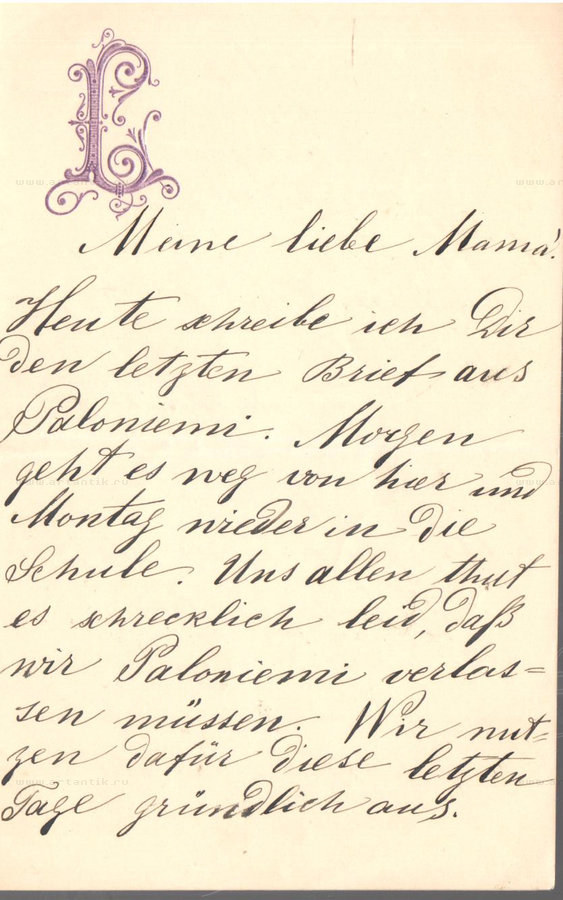 L
Meine liebe Mama!
Heute schreibe ich Dir
den letzten Brief aus
Paloniemi. Morgen
geht es weg von hier und
Montag wieder in die
Schule. Uns allen thut
es schrecklich leid, daß
wir Paloniemi verlas=
sen müssen. Wir nut=
zen dafür diese letzten
Tage gründlich aus.
www.artantik.ru